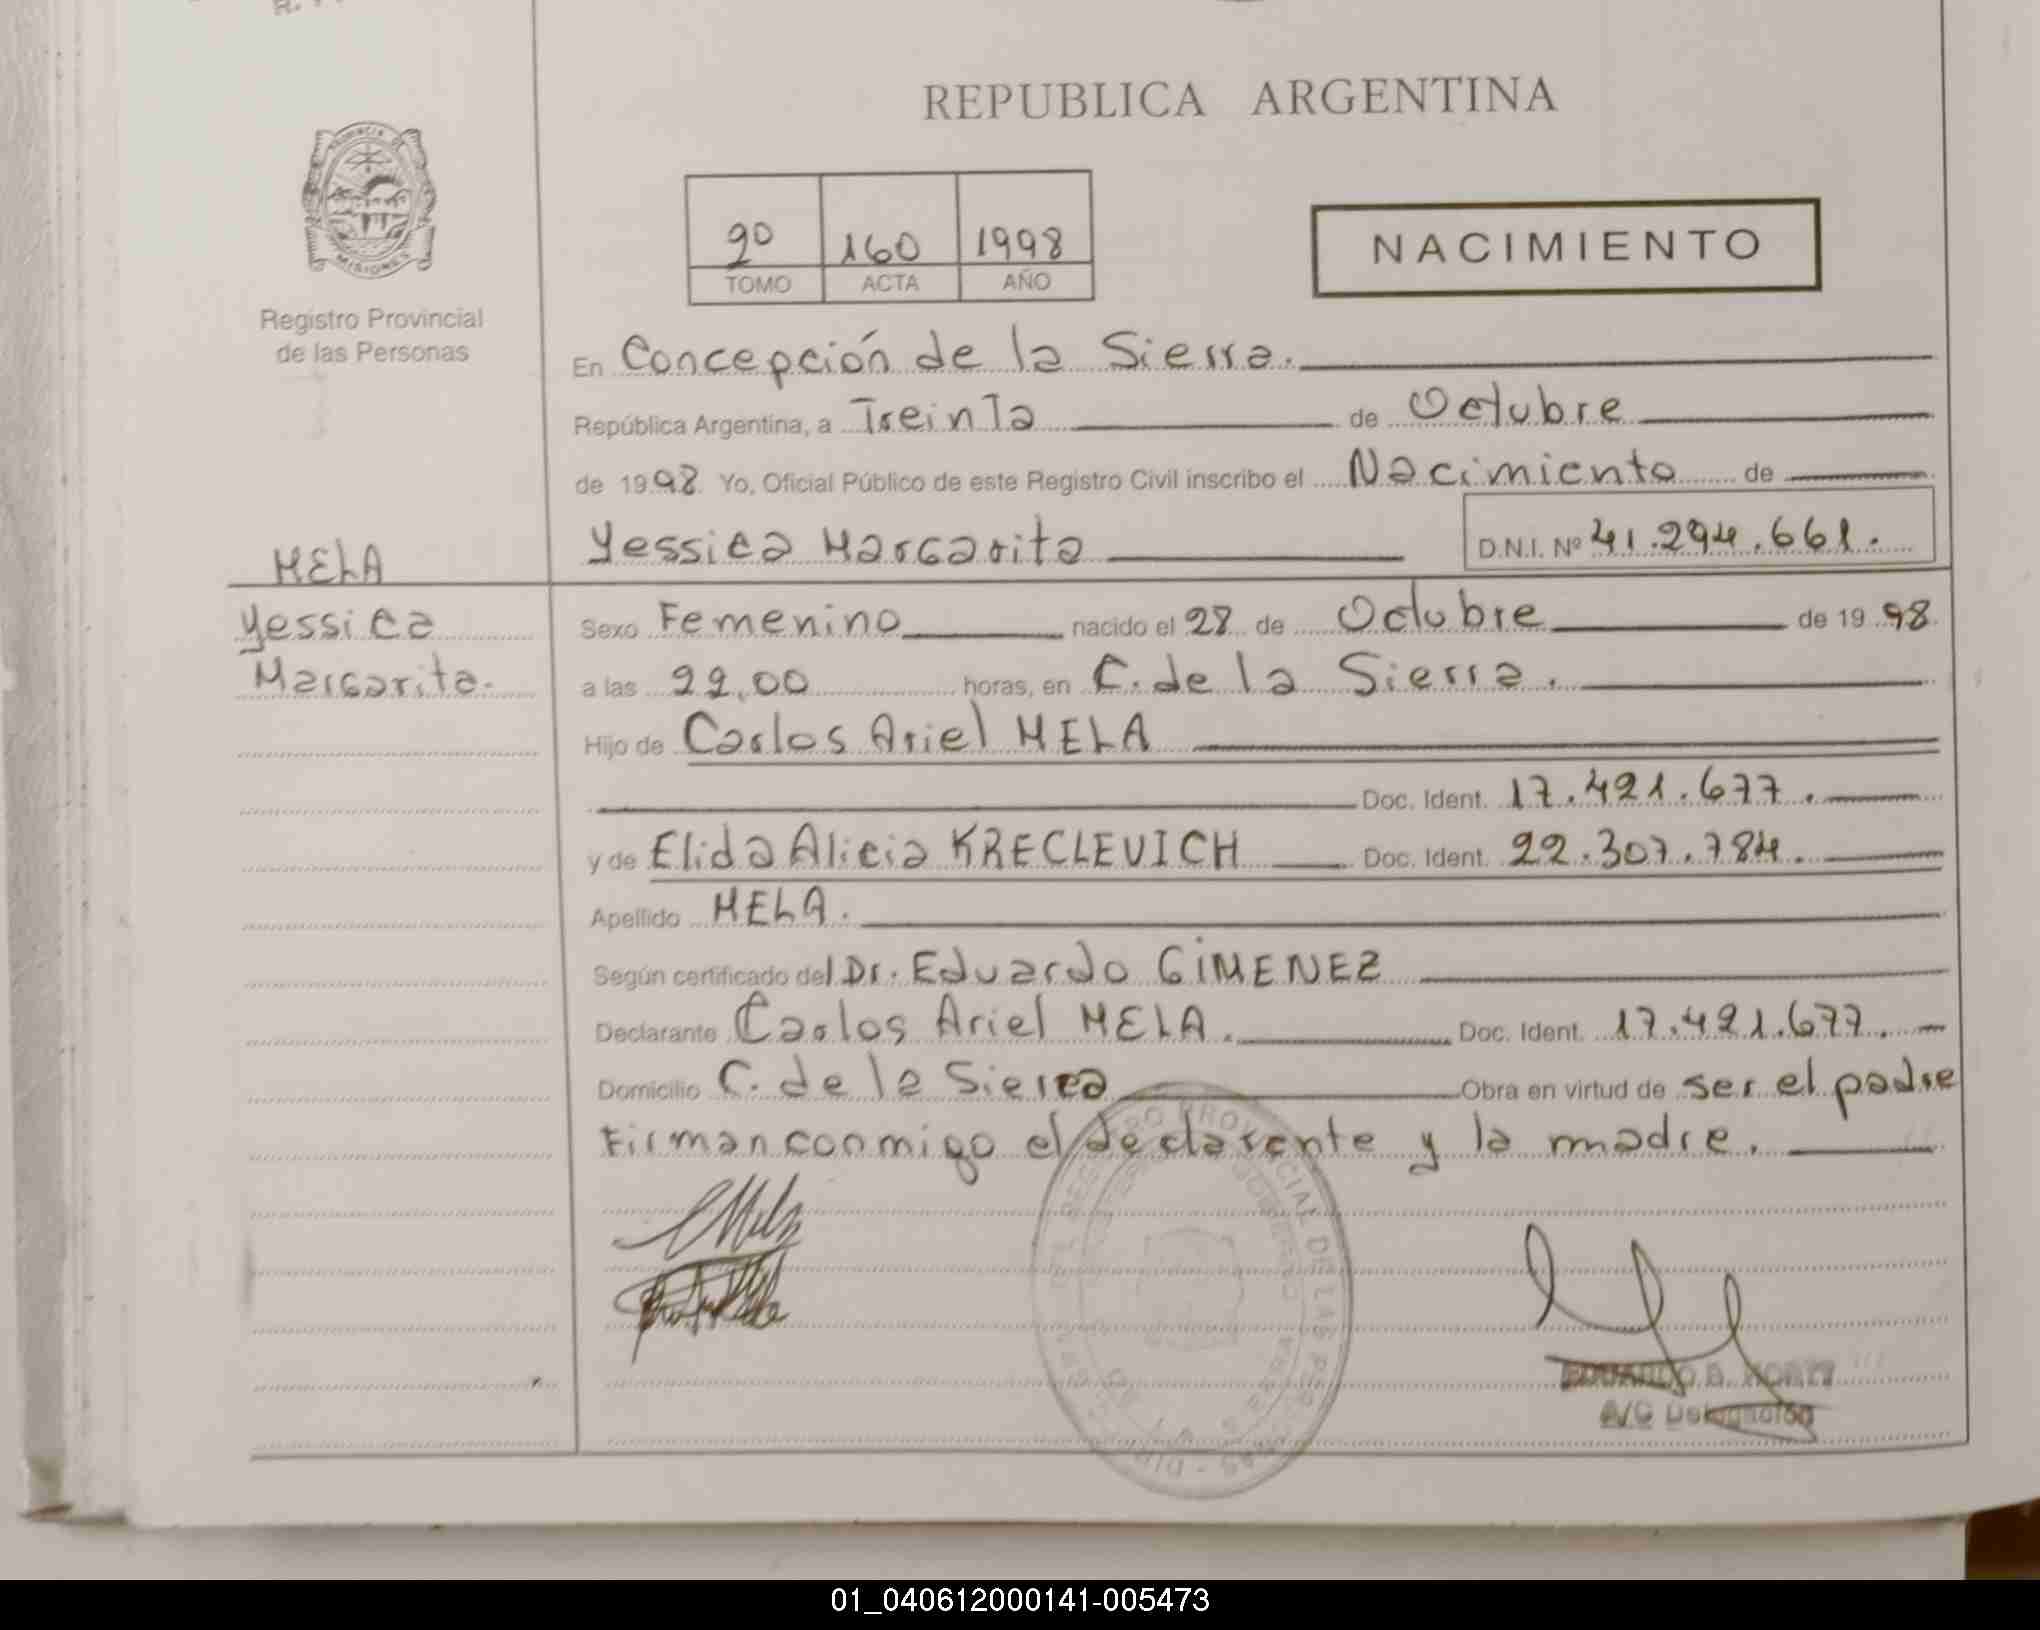 REPUBLICA ARGENTINA
PROVINCIA DE MISIONES
Registro Provincial
de las Personas
2º 160 1998
TOMO ACTA AÑO
NACIMIENTO
En Concepción de la Sierra.
República Argentina, a Treinta de Octubre
de 1998 Yo, Oficial Público de este Registro Civil inscribo el Nacimiento de
Yessica Margarita D.N.I. Nº 41.294.661.
MELA
Yessica
Margarita.
Sexo Femenino nacido el 28 de Octubre de 1998
a las 22,00 horas, en C. de la Sierra.
Hijo de Carlos Ariel MELA
Doc. Ident. 17.421.677.
y de Elida Alicia KRECLEVICH Doc. Ident. 22.307.784.
Apellido MELA.
Según certificado del Dr. Eduardo GIMENEZ
Declarante Carlos Ariel MELA. Doc. Ident. 17.421.677.
Domicilio C. de la Sierra Obra en virtud de ser el padre
Firman conmigo el declarante y la madre.
REGISTRO PROVINCIAL DE LAS PERSONAS
A/C Delegación
01_040612000141-005473